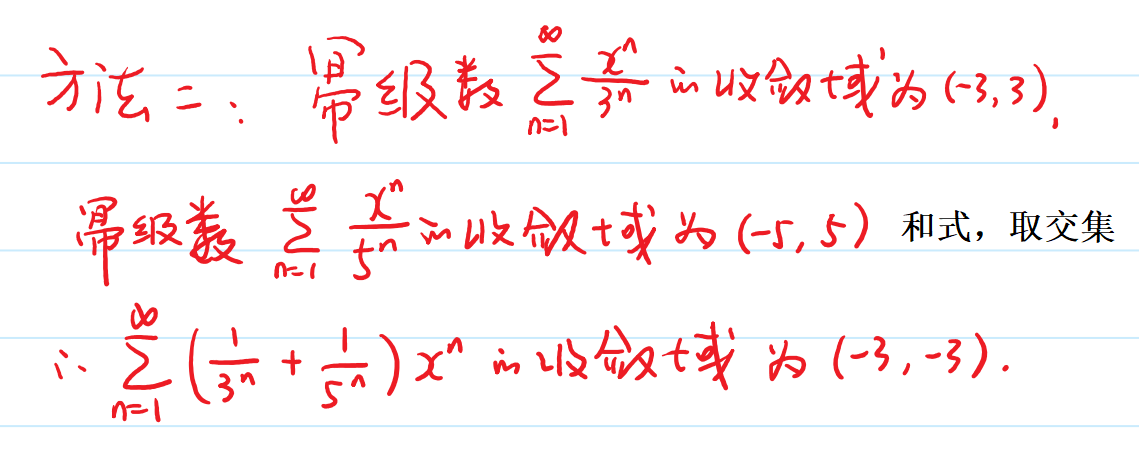 方法二、幂级数 $\sum_{n=1}^{\infty} \frac{x^n}{3^n}$ 的收敛域为 (-3,3),
幂级数 $\sum_{n=1}^{\infty} \frac{x^n}{5^n}$ 的收敛域为 (-5,5) 和式，取交集
∴ $\sum_{n=1}^{\infty} \left(\frac{1}{3^n} + \frac{1}{5^n}\right) x^n$ 的收敛域为 (-3,-3).